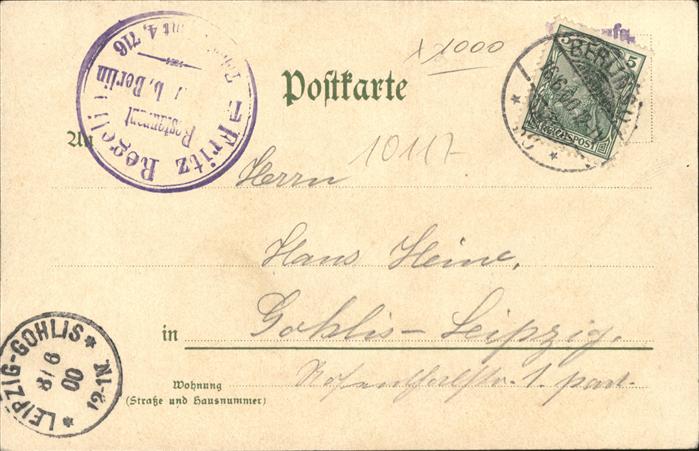 x 1000
Postkarte
BERLIN
5
REICHSPOST
Fritz Regel
Restaurant
b. Berlin
4, 716
An
10117
Herrn
Hans Heine,
in Gohlis-Leipzig.
Wohnung
(Straße und Hausnummer)
1. part.
LEIPZIG-GOHLIS
8/6
00